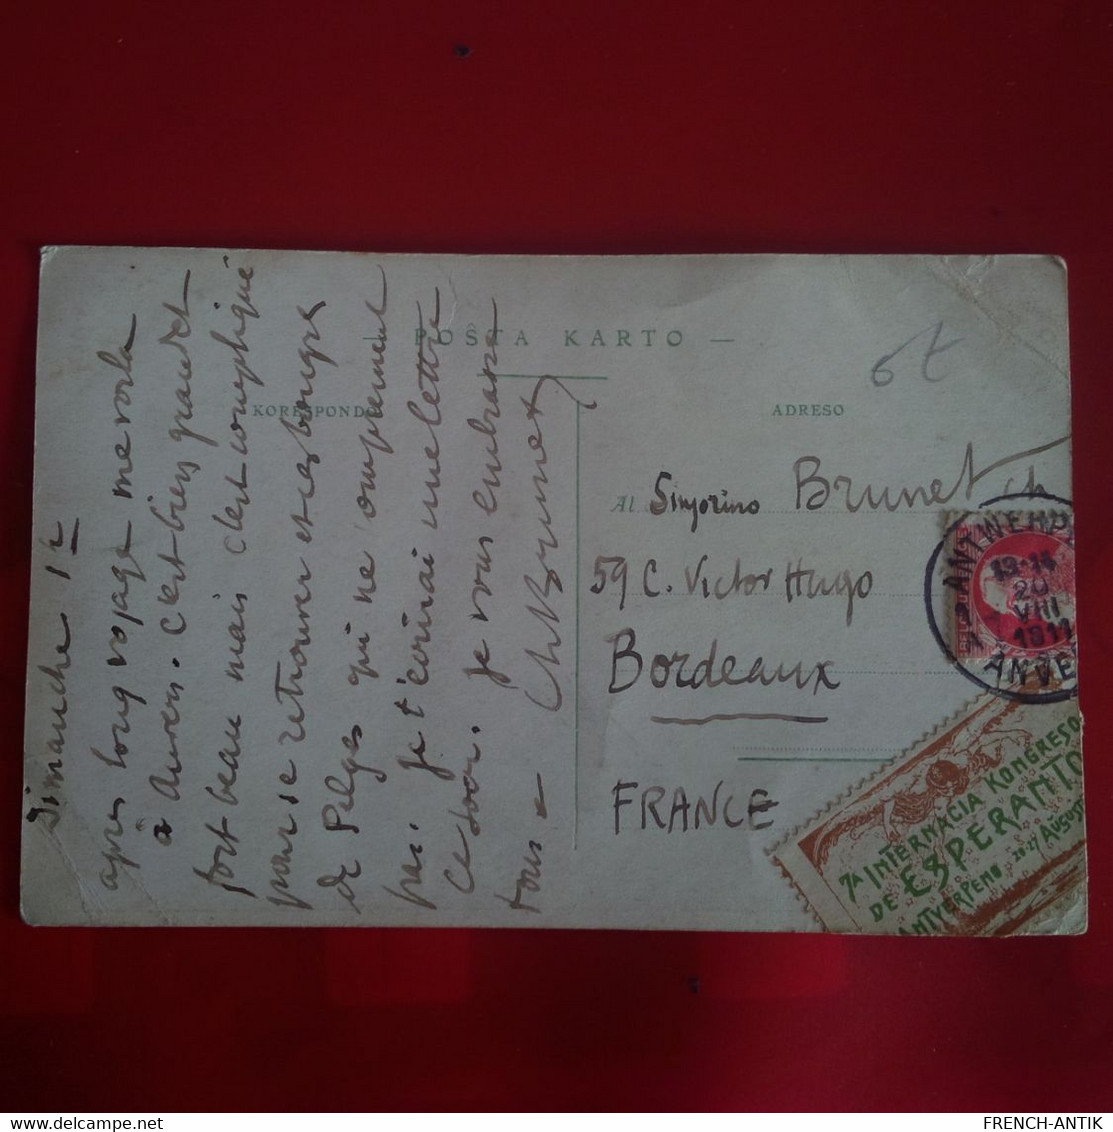 POŜTA KARTO
KORESPONDO
ADRESO
6t
Dimanche 1h
apres long voyage me voila
a Anvers. C'est bien grand et
fort beau mais c'est compliqué
pour se retrouver et ces bougres
de Belges qui ne comprennent
pas. Je t'écrirai une lettre
ce soir. Je vous embrasse
tous
Ch Brunet
Al Sinjorino Brunet Ch
59 C. Victor Hugo
Bordeaux
FRANCE
ANTWERPEN
13-14
20
VIII
1911
ANVERS
7A INTERNACIA KONGRESO
DE ESPERANTO
ANTVERPENO 20-27 AUGUSTO
www.delcampe.net
FRENCH-ANTIK